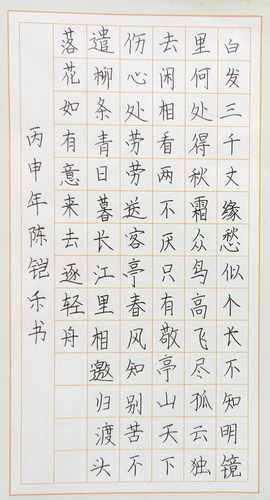 白发三千丈缘愁似个长不知明镜
里何处得秋霜众鸟高飞尽孤云独
去闲相看两不厌只有敬亭山天下
伤心处劳劳送客亭春风知别苦不
遣柳条青日暮长江里相邀归渡头
落花如有意来去逐轻舟
丙申年陈铠乐书